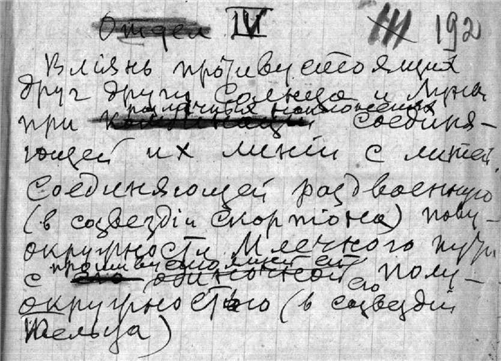 Отдел IV III 192
Влiянь противустоящих
друг другу Солнца и Луны
при наложенiи соединя-
ющей их линiи с линiей,
соединяющей раздвоенную
(в созвездiи Скорпiона) полу-
окружность Млечного пути
с противустоящей ей
одиночной его полу-
окружностью (в созвездiи
Тельца)